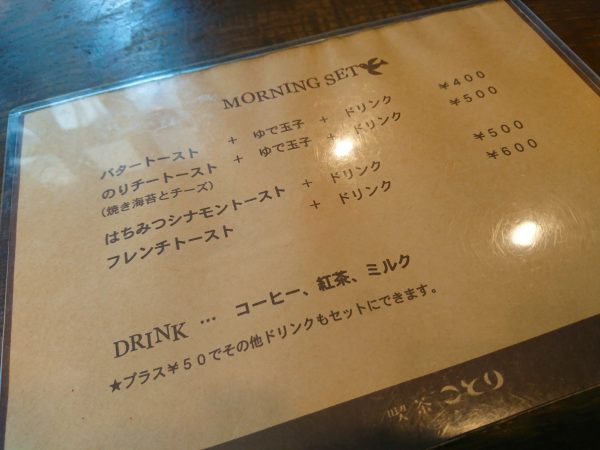 MORNING SET
バタートースト + ゆで玉子 + ドリンク ¥400
のりチートースト + ゆで玉子 + ドリンク ¥500
(焼き海苔とチーズ)
はちみつシナモントースト + ドリンク ¥500
フレンチトースト + ドリンク ¥600
DRINK … コーヒー、紅茶、ミルク
★プラス¥50でその他ドリンクもセットにできます。
喫茶 ことり